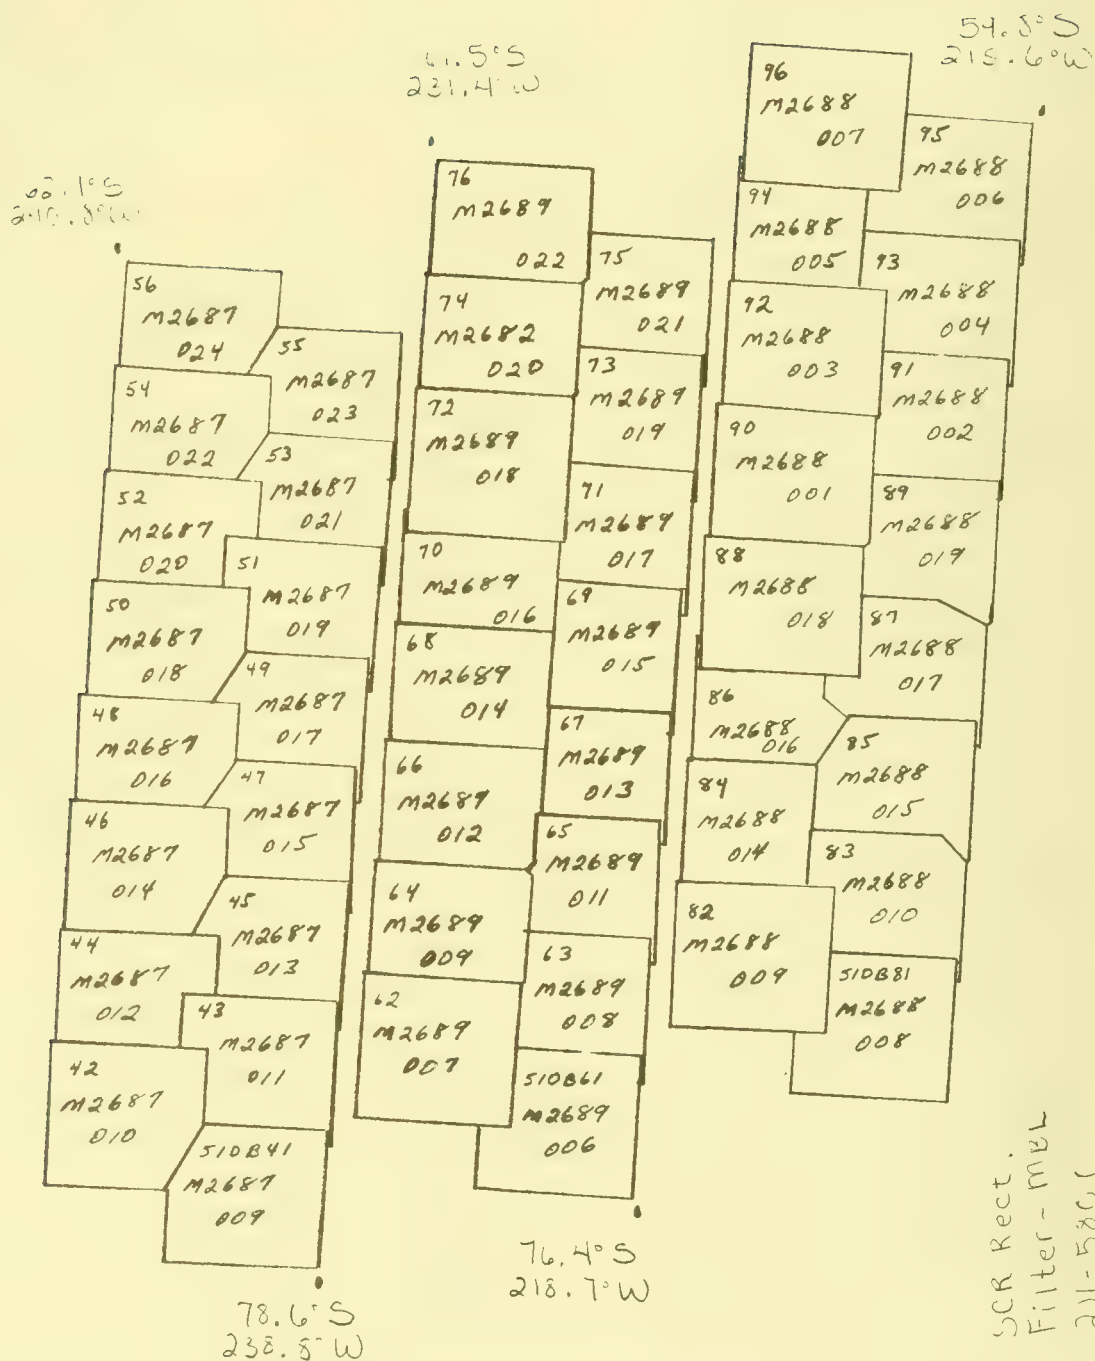 54.8°S
231.4°W
56
M2687
024
55
M2687
023
54
M2687
022
53
M2687
021
52
M2687
020
51
M2687
019
50
M2687
018
49
M2687
017
48
M2687
016
47
M2687
015
46
M2687
014
45
M2687
013
44
M2687
012
43
M2687
011
42
M2687
010
510B41
M2687
009
78.6°S
238.8°W
76
M2689
022
75
M2689
021
74
M2682
020
73
M2689
019
72
M2689
018
71
M2689
017
70
M2689
016
69
M2689
015
68
M2689
014
67
M2689
013
66
M2689
012
65
M2689
011
64
M2689
009
63
M2689
008
62
M2689
007
510B61
M2689
006
76.4°S
218.7°W
96
M2688
007
95
M2688
006
94
M2688
005
93
M2688
004
92
M2688
003
91
M2688
002
90
M2688
001
89
M2688
019
88
M2688
018
87
M2688
017
86
M2688
016
85
M2688
015
84
M2688
014
83
M2688
010
82
M2688
009
510B81
M2688
008
SCR Rect.
Filter-MBL